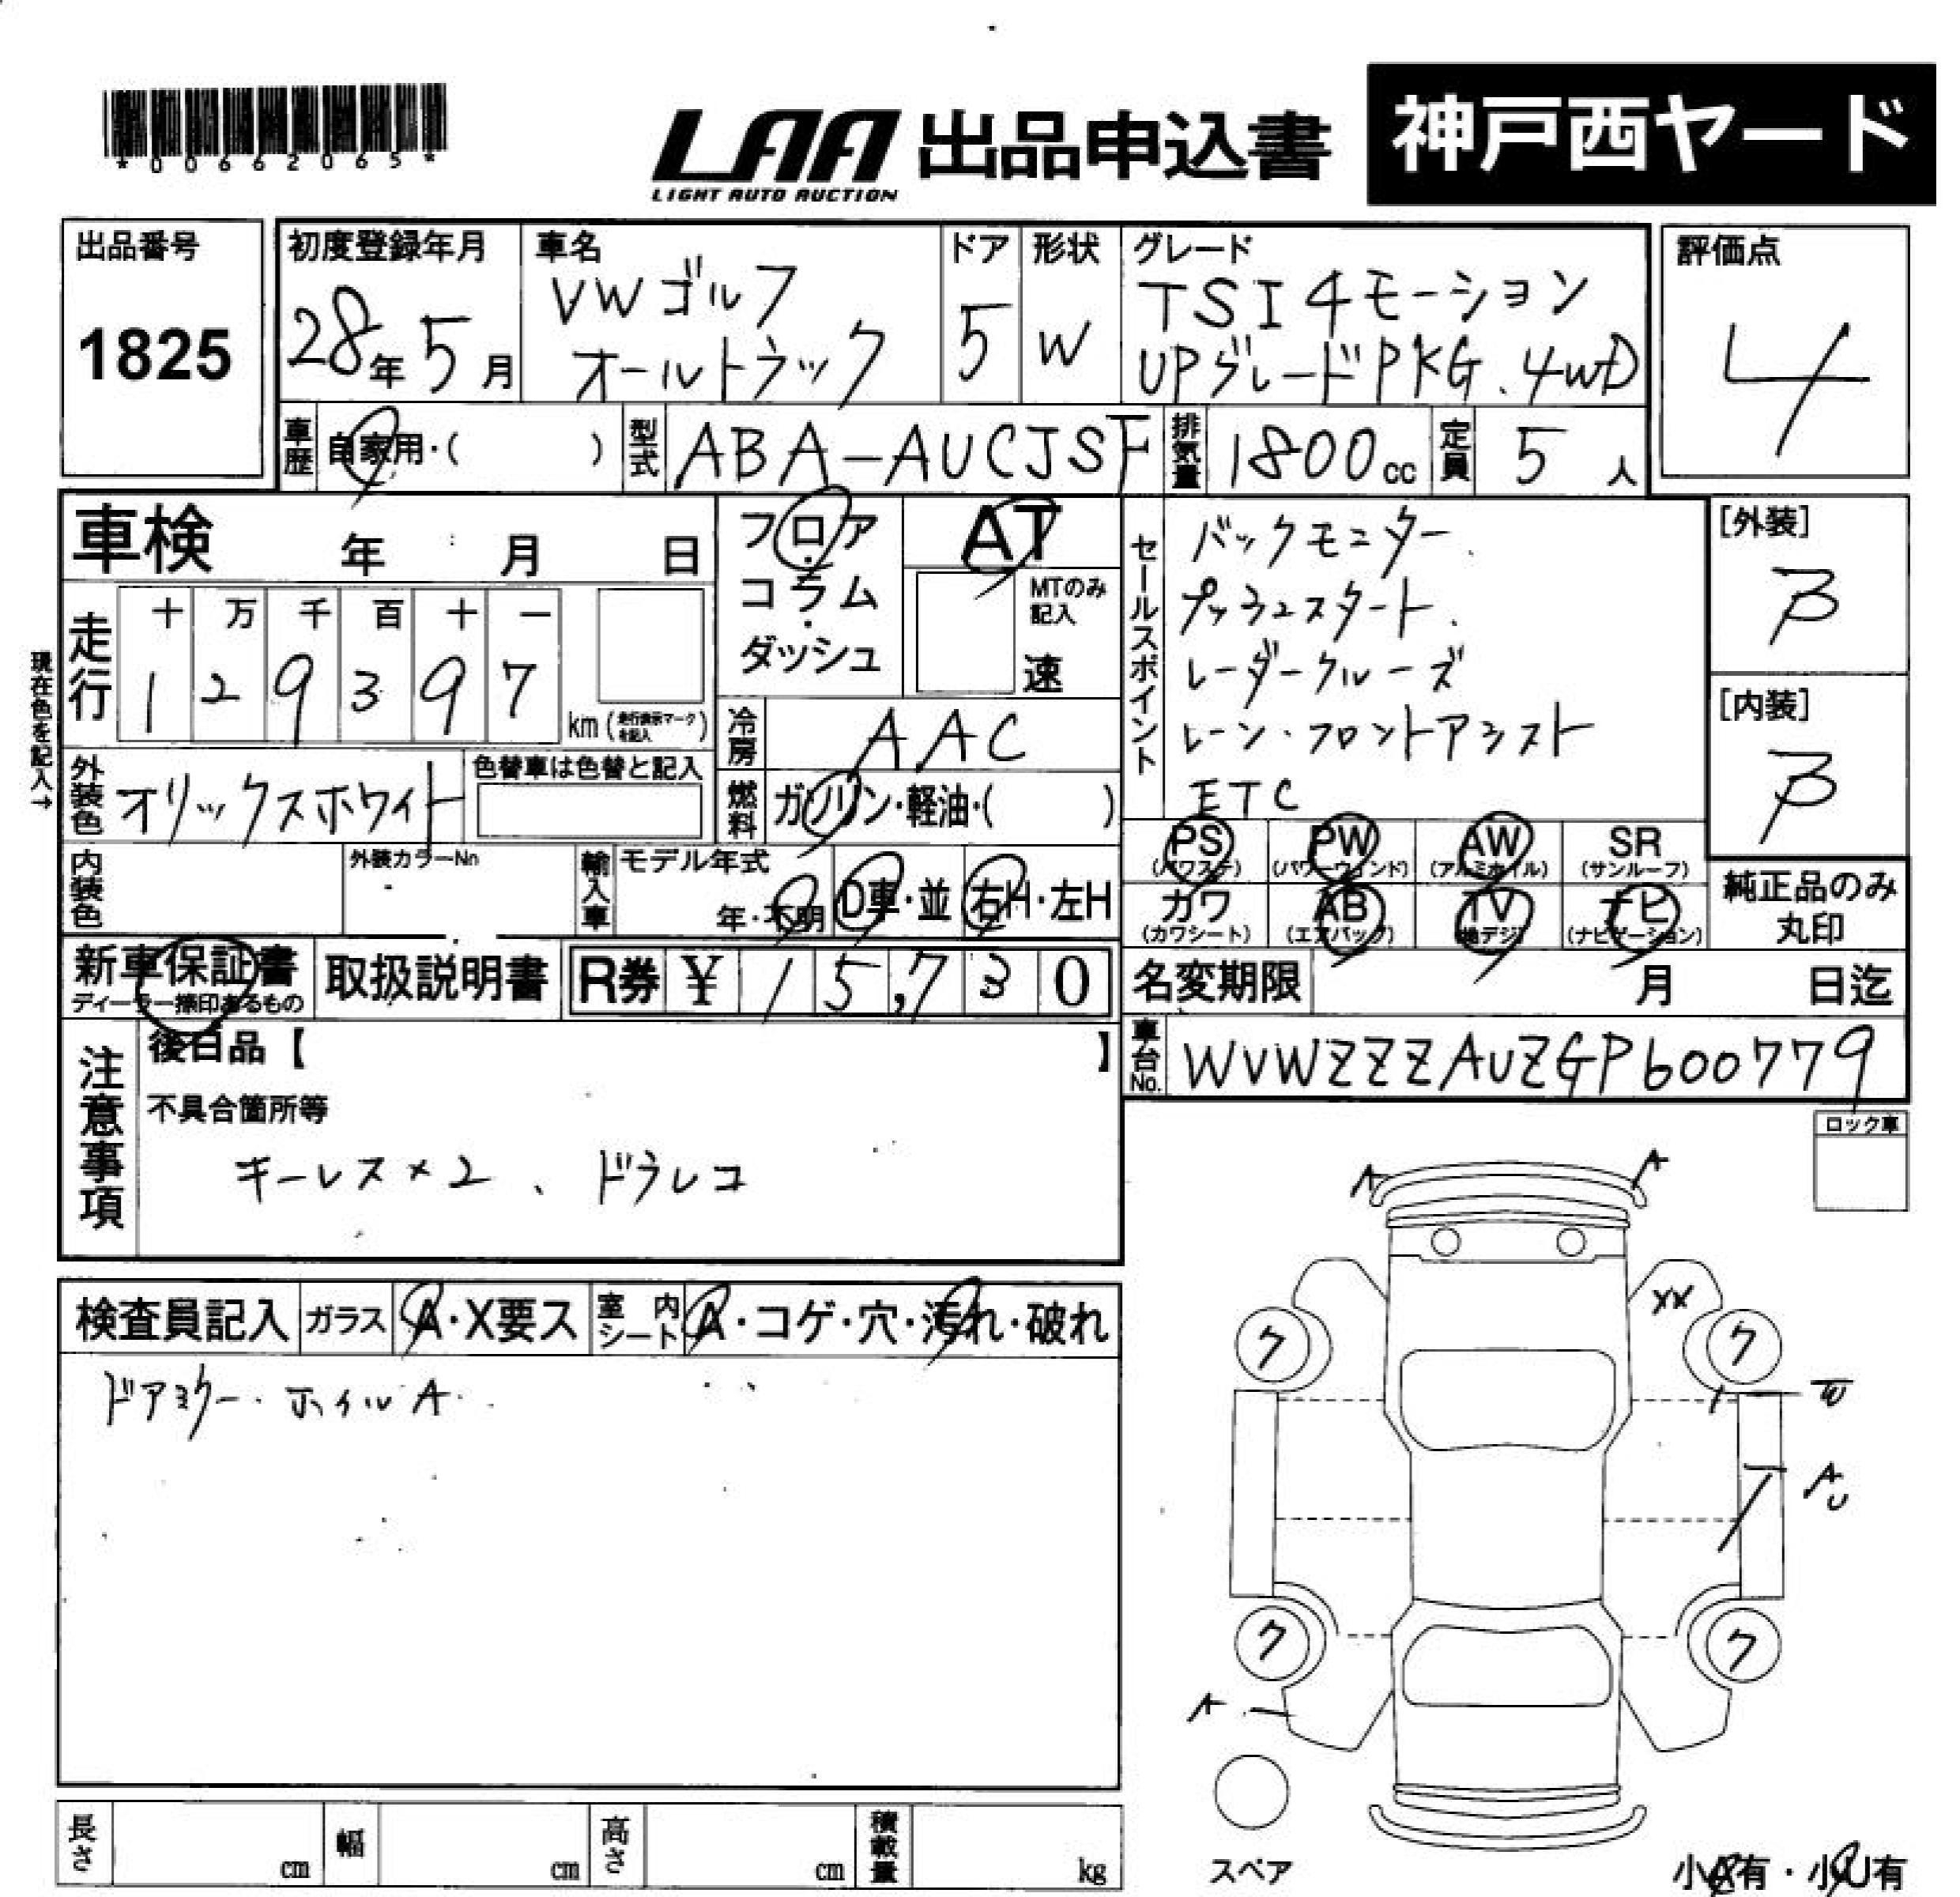 *00662065*
LAA 出品申込書 神戸西ヤード
LIGHT AUTO AUCTION
出品番号 1825
初度登録年月 28年5月
車名 VWゴルフ
オールトラック
ドア 5
形状 W
グレード TSI 4モーション
UPグレードPKG. 4WD
評価点 4
車歴 自家用・( )
型式 ABA-AUCJSF
排気量 1800cc
定員 5人
車検 年 月 日
フロア・コラム・ダッシュ
AT
MTのみ記入
速
セールスポイント
バックモニター.
プッシュスタート.
レーダークルーズ
レーン・フロントアシスト
ETC
[外装] B
[内装] B
現在色を記入→
走行 十 万 千 百 十 一
1 2 9 3 9 7
km (走行表示マークを記入)
冷房 AAC
外装色 オリックスホワイト
色替車は色替と記入
燃料 ガソリン・軽油・( )
PS (パワステ) PW (パワーウィンド) AW (アルミホイル) SR (サンルーフ)
カワ (カワシート) AB (エアバッグ) TV (地デジ) ナビ (ナビゲーション)
純正品のみ
丸印
内装色
外装カラーNo
輸入車 モデル年式
年・不明 D車・並 右H・左H
新車保証書
ディーラー捺印あるもの
取扱説明書
R券 ¥ 15,730
名変期限 月 日迄
車台No. WVWZZZAUZGP600779
注意事項
後日品【 】
不具合箇所等
キーレス×2、ドラレコ
ロック車
A A
XX
ク ク
W
A
U
ク ク
A
検査員記入 ガラス A・X要ス 室内シート A・コゲ・穴・汚れ・破れ
ドアミラー・ホイルA.
長さ cm 幅 cm 高さ cm 積載量 kg
スペア
小A有・小U有